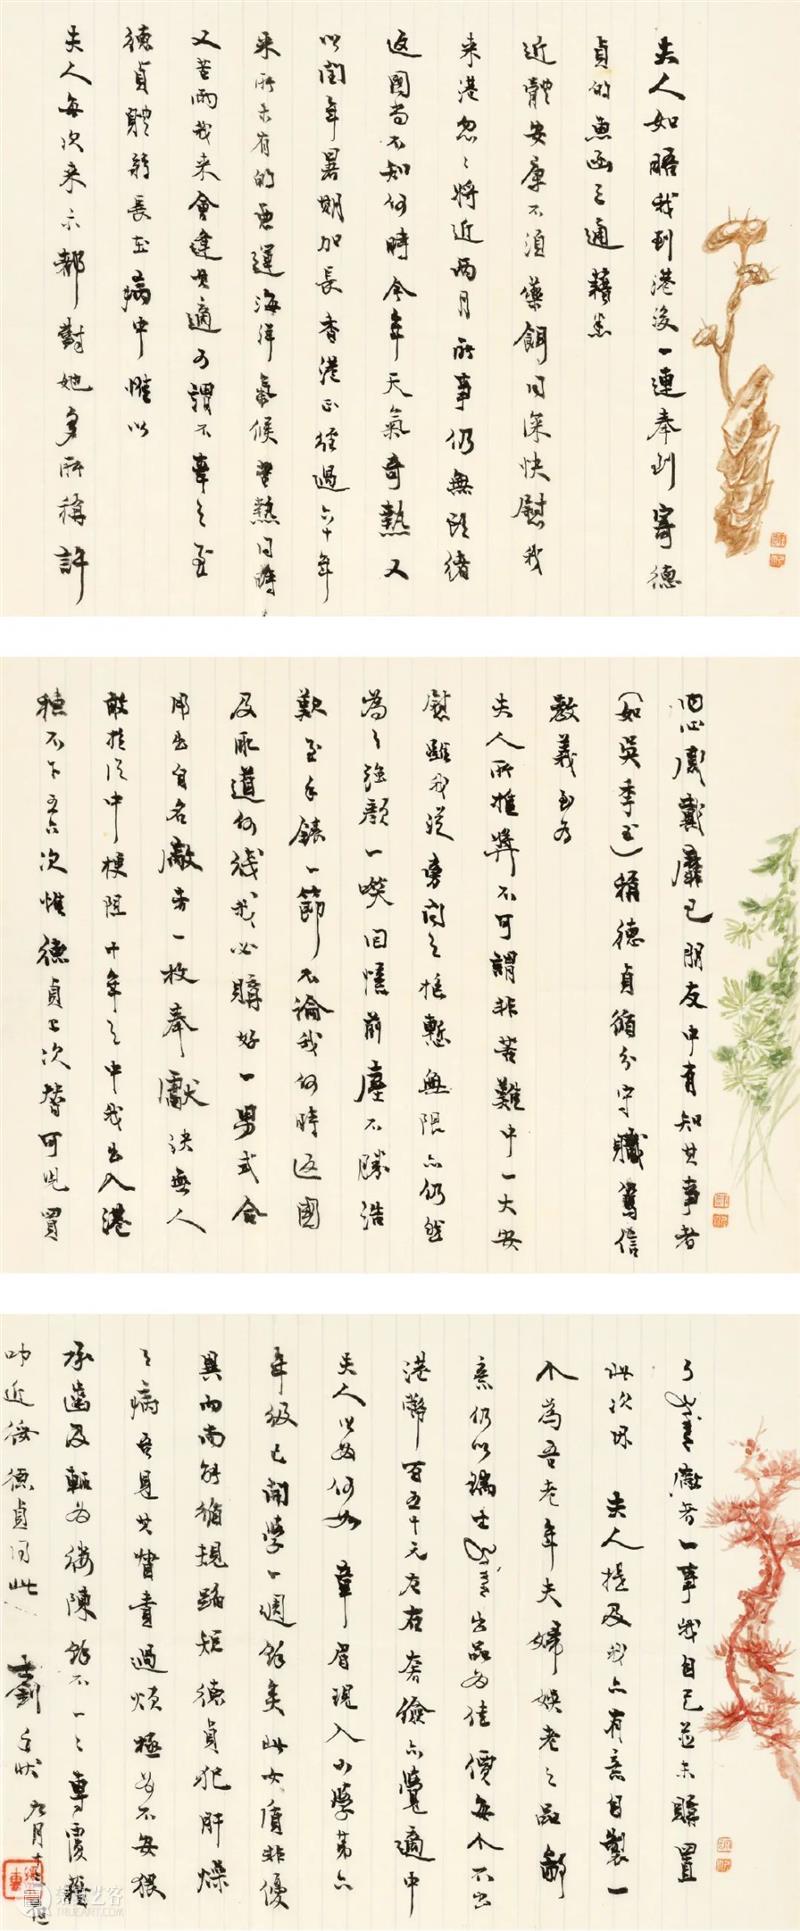 夫人如晤我到港後一連奉到寄德
貞的魚函三通藉悉
近體安康不須藥餌同深快慰我
来港忽忽將近兩月所事仍無頭緒
返國尚不知何時今年天氣奇熱又
以閏年暑期加長香港正經過六十年
来所未有的惡運海洋氣候熱同時
又苦雨我来會逢其適可謂不幸之至
德貞體弱長在病中惟以
夫人每次来示都對她多所稱許
心感戴靡已朋友中有知其事者
(如吳季玉)稱德貞循分守職篤信
教義至為
夫人所推獎不可謂非苦難中一大安
慰雖我從旁聞之抱慙無限亦仍然
為之強顏一咲回憶前塵不勝浩
歎至手錶一節不論我何時返國
及取道何綫我必購好一男式合
用出自名廠者一枚奉獻決無人
敢於從中梗阻十年之中我出入港
穗不下五六次惟德貞上次替可兒買
了廠者一事我自己並未購置
此次 夫人提及我亦有意自製一
个為吾老年夫婦娛老之品鄙
意仍以瑞士出品為佳價每个不出
港幣百五十元左右奢儉亦覺適中
夫人以為何如 章眉現入小學第六
年級已開學一週餘矣此女質非優
異而尚能循規蹈矩德貞犯肝燥
之病吾見其督責過煩極為不安狠
承齒及輒為縷陳餘不一一專覆藉
叩近綏德貞同此
士釗手狀 九月十